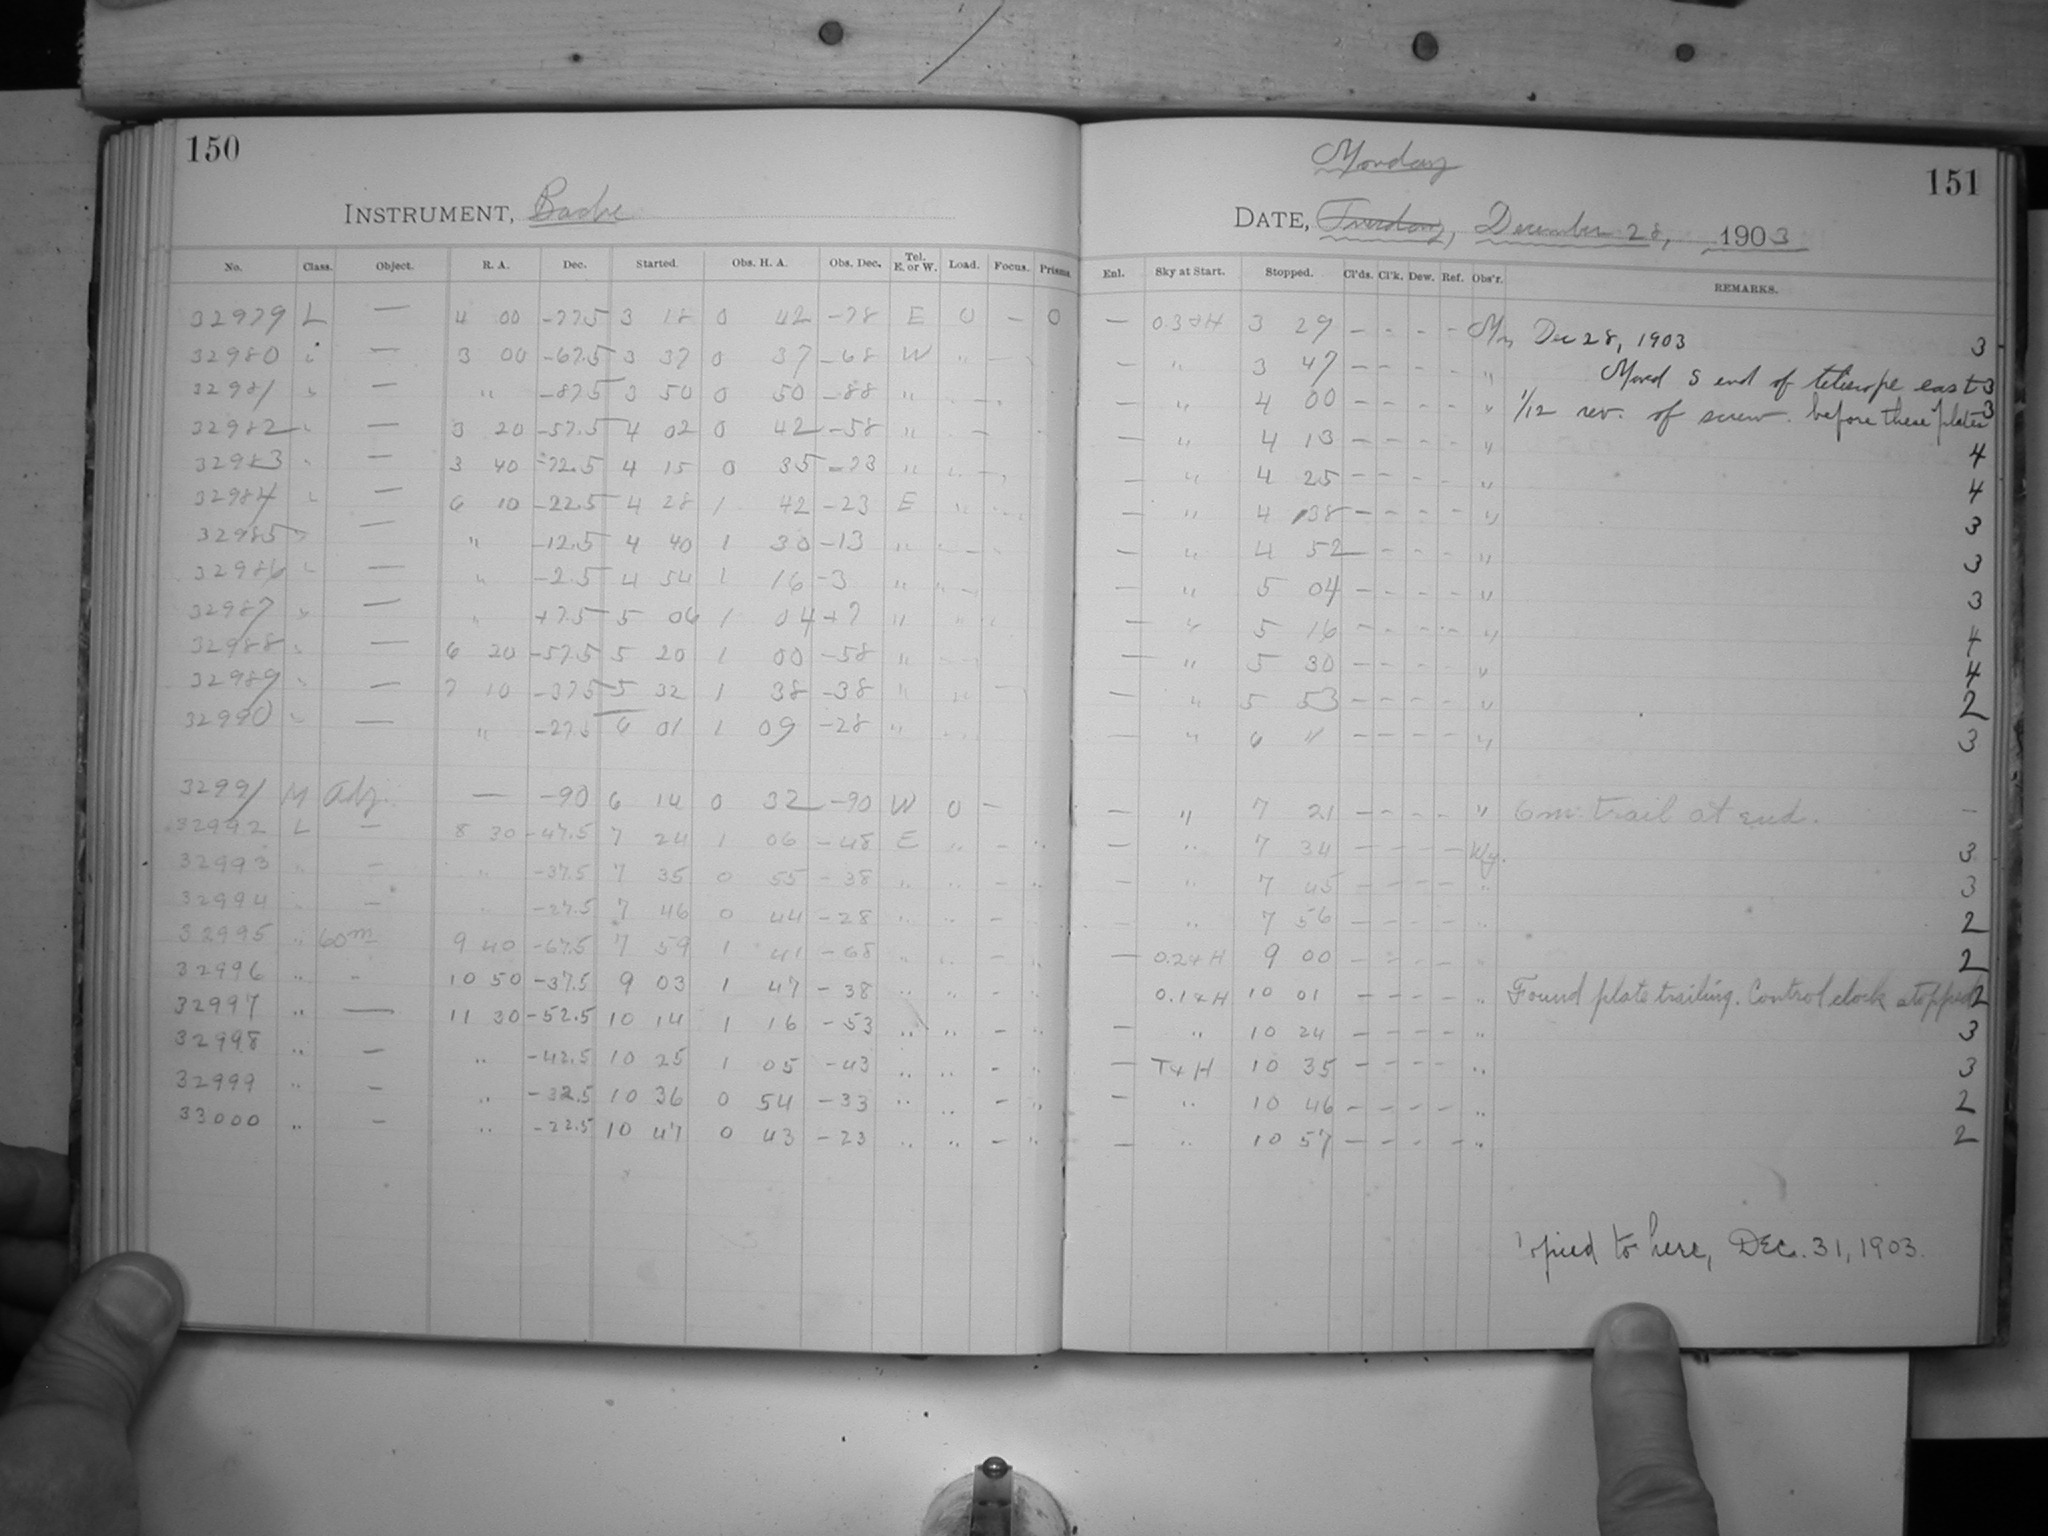 150
INSTRUMENT, Bache
No. Class. Object. R. A. Dec. Started. Obs. H. A. Obs. Dec. Tel. E. or W. Load. Focus. Prisms.
32979 L — 4 00 -77.5 3 18 0 42 -78 E 0 - 0
32980 " — 3 00 -67.5 3 37 0 37 -68 W " -
32981 " — " -87.5 3 50 0 50 -88 " " -
32982 " — 3 20 -57.5 4 02 0 42 -58 " " -
32983 " — 3 40 -72.5 4 15 0 35 -73 " " -
32984 " — 6 10 -22.5 4 28 1 42 -23 E " -
32985 " — " -12.5 4 40 1 30 -13 " " -
32986 " — " -2.5 4 54 1 16 -3 " " -
32987 " — " +7.5 5 06 1 04 +7 " "
32988 " — 6 20 -57.5 5 20 1 00 -58 " " -
32989 " — 7 10 -37.5 5 32 1 38 -38 " " -
32990 " — " -27.5 6 01 1 09 -28 " "
32991 M Adj. — -90 6 14 0 32 -90 W 0 -
32992 L — 8 30 -47.5 7 24 1 06 -48 E " - "
32993 " — " -37.5 7 35 0 55 -38 " " - "
32994 " — " -27.5 7 46 0 44 -28 " " - "
32995 " 60m 9 40 -67.5 7 59 1 41 -68 " " - "
32996 " " 10 50 -37.5 9 03 1 47 -38 " " - "
32997 " — 11 30 -52.5 10 14 1 16 -53 " " - "
32998 " — " -42.5 10 25 1 05 -43 " " - "
32999 " — " -32.5 10 36 0 54 -33 " " - "
33000 " — " -22.5 10 47 0 43 -23 " " - "
151
Monday
DATE, Tuesday, December 28, 1903
Enl. Sky at Start. Stopped. Cl'ds. Cl'k. Dew. Ref. Obs'r. REMARKS.
— 0.3+H 3 29 - - - - Dec 28, 1903 3
— " 3 47 - - - - " Moved S end of telescope east 3
— " 4 00 - - - - " 1/12 rev. of screw. before these plates 3
— " 4 13 - - - - " 4
— " 4 25 - - - - " 4
— " 4 38 - - - - " 3
— " 4 52 - - - - " 3
— " 5 04 - - - - " 3
— " 5 16 - - - - " 4
— " 5 30 - - - - " 4
— " 5 53 - - - - " 2
— " 6 11 - - - - " 3
— " 7 21 - - - - " 6m trail at end. -
— " 7 34 - - - - Wy. 3
— " 7 45 - - - - " 3
— " 7 56 - - - - " 2
— 0.2+H 9 00 - - - - " 2
0.1+H 10 01 - - - - " Found plate trailing. Control clock stopped 2
— " 10 24 - - - - " 3
— T+H 10 35 - - - - " 3
— " 10 46 - - - - " 2
— " 10 57 - - - - " 2
opied to here, DEC. 31, 1903.